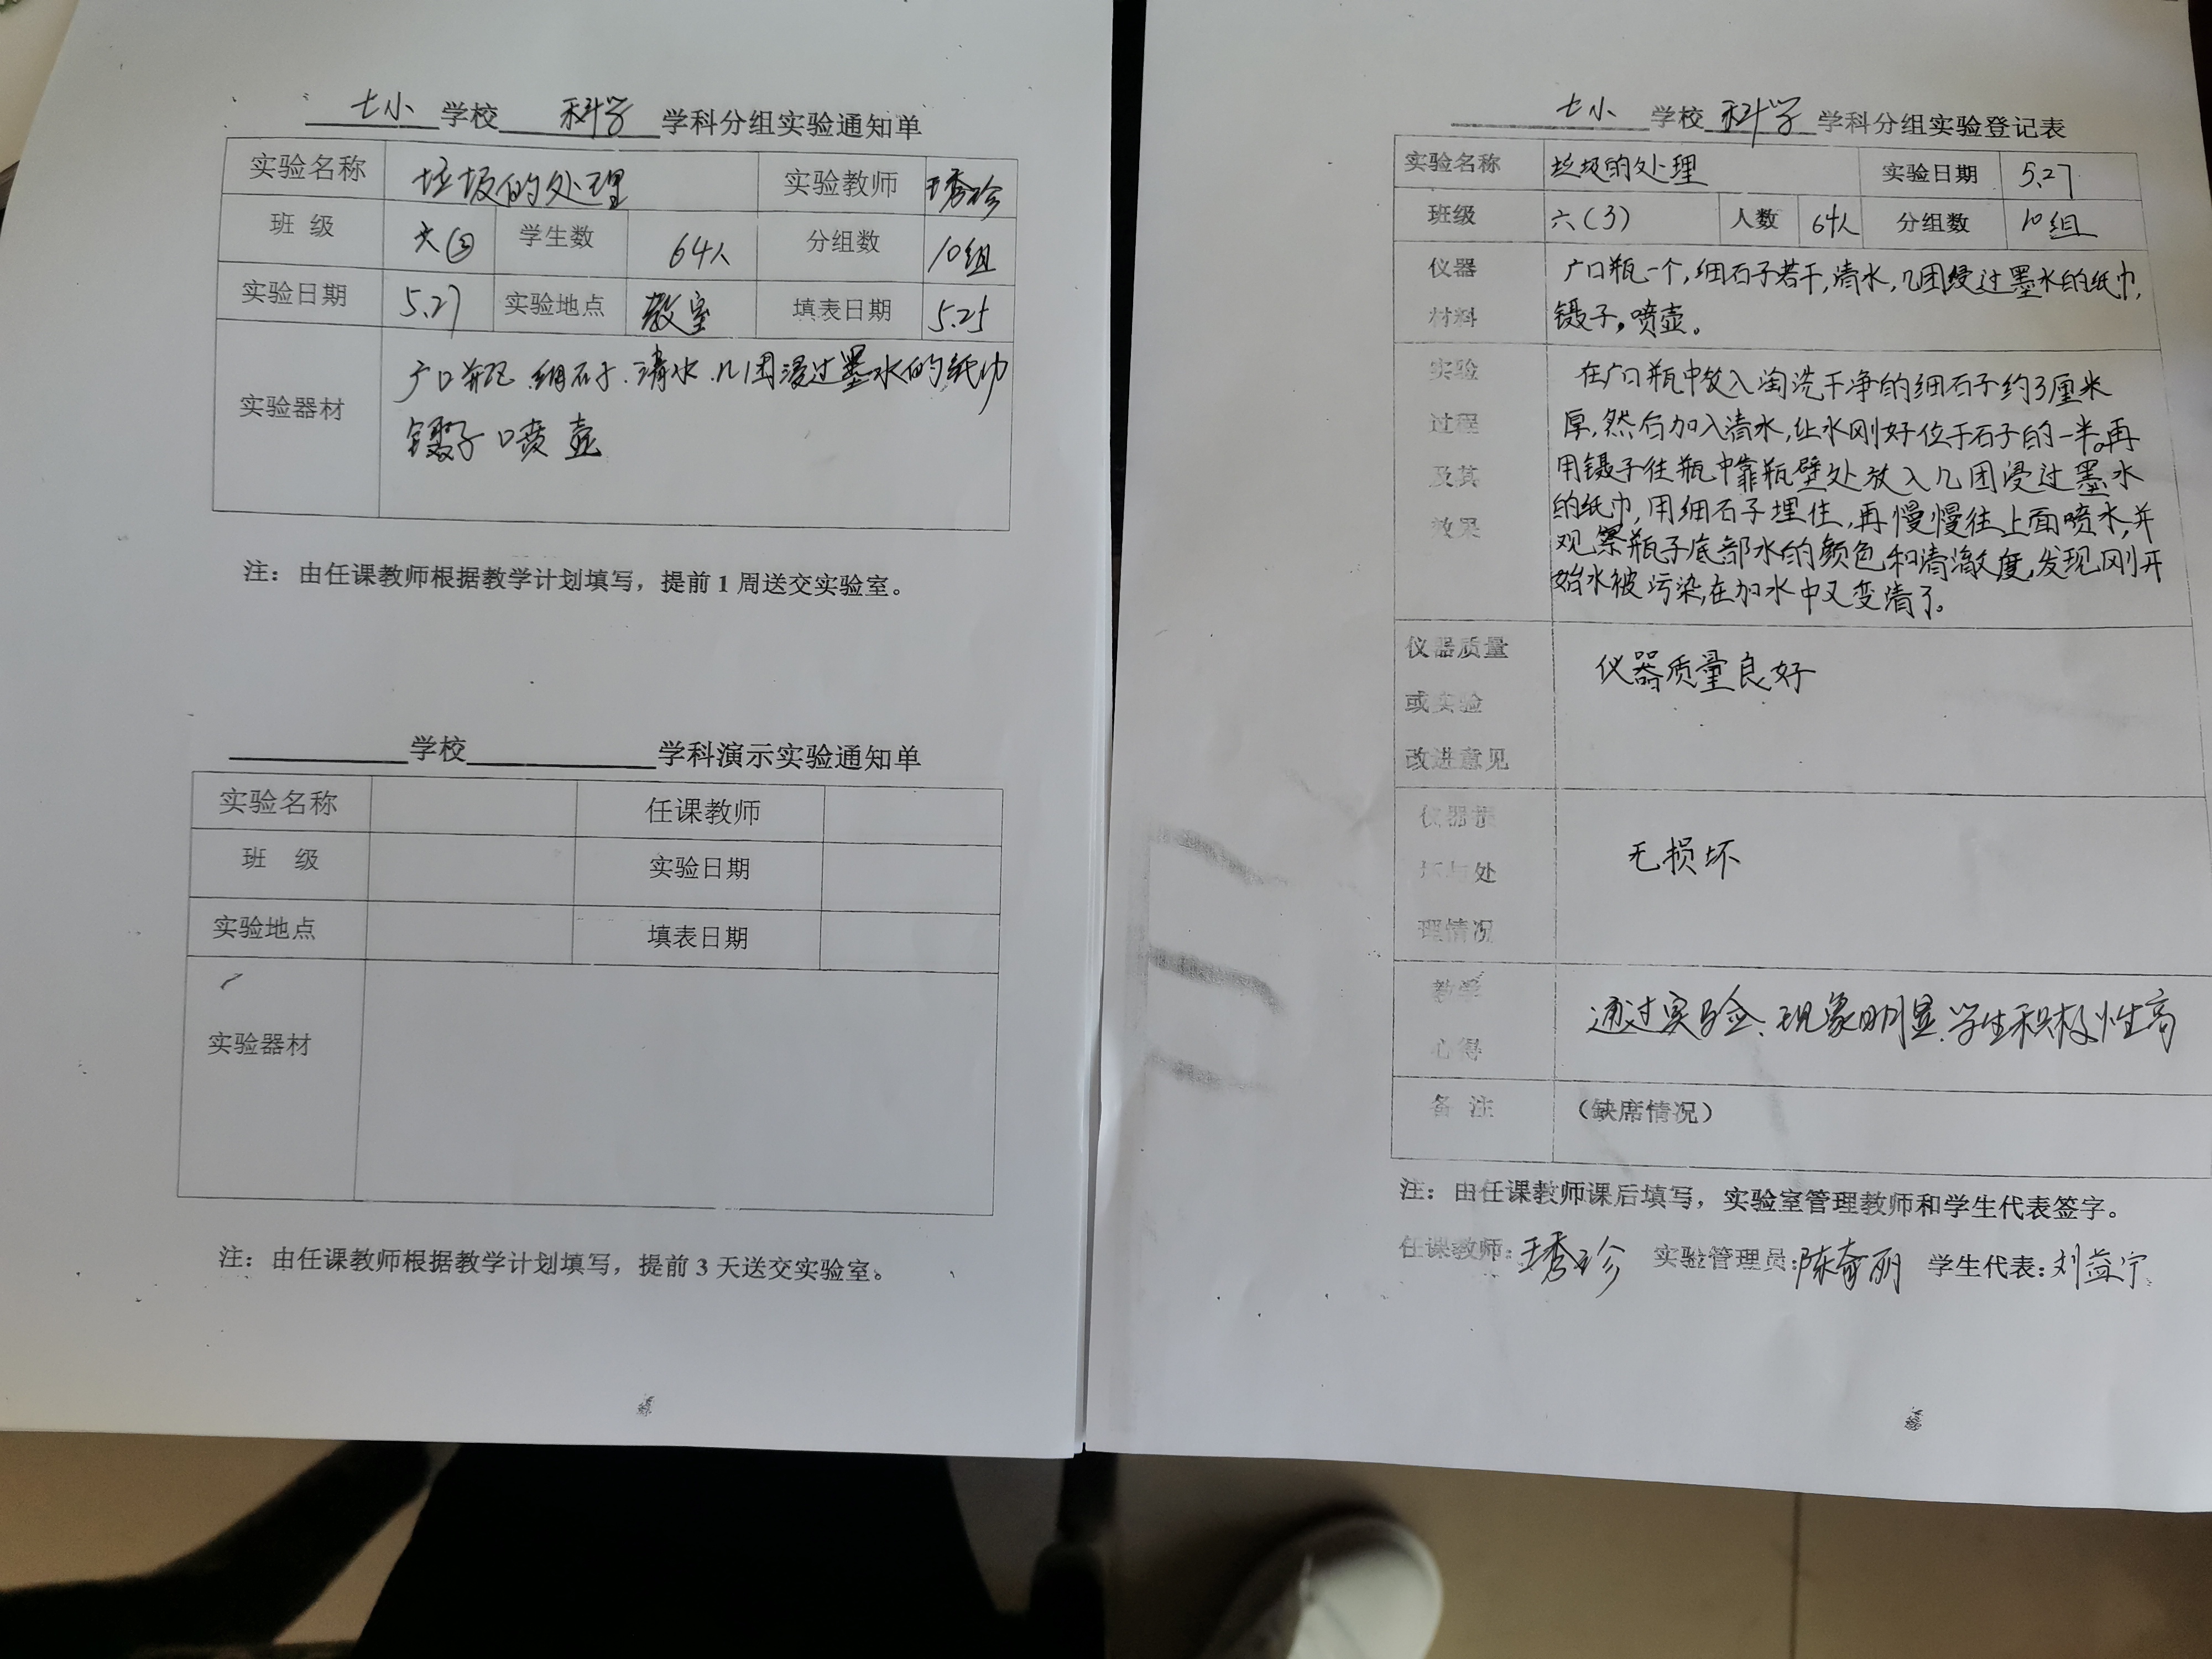 七小 学校 科学 学科分组实验通知单
实验名称 垃圾的处理 实验教师 王秀珍
班 级 六③ 学生数 64人 分组数 10组
实验日期 5.27 实验地点 教室 填表日期 5.25
实验器材 广口瓶 细石子、清水、几团浸过墨水的纸巾
镊子 喷壶
注：由任课教师根据教学计划填写，提前1周送交实验室。
学校 学科演示实验通知单
实验名称 任课教师
班 级 实验日期
实验地点 填表日期
实验器材
注：由任课教师根据教学计划填写，提前3天送交实验室。
七小 学校 科学 学科分组实验登记表
实验名称 垃圾的处理 实验日期 5.27
班级 六(3) 人数 64人 分组数 10组
仪器 广口瓶一个,细石子若干,清水,几团浸过墨水的纸巾,
材料 镊子,喷壶。
实验 在广口瓶中放入淘洗干净的细石子约3厘米
过程 厚,然后加入清水,让水刚好位于石子的一半。再
及其 用镊子往瓶中靠瓶壁处放入几团浸过墨水
效果 的纸巾,用细石子埋住,再慢慢往上面喷水,并
观察瓶子底部水的颜色和清澈度,发现刚开
始水被污染,在加水中又变清了。
仪器质量 仪器质量良好
或实验
改进意见
仪器损 无损坏
坏与处
理情况
教学 通过实验、现象明显、学生积极性高
心得
备 注 （缺席情况）
注：由任课教师课后填写，实验室管理教师和学生代表签字。
任课教师：王秀珍 实验管理员：陈奋丽 学生代表：刘益宁